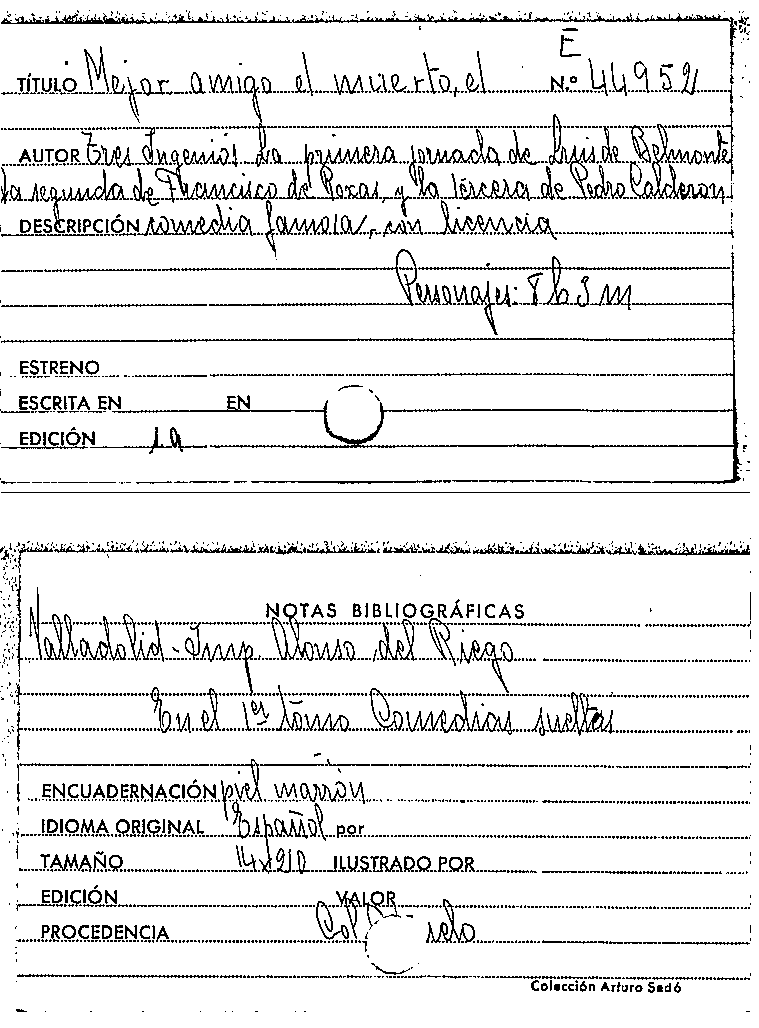 E
TÍTULO Mejor amigo el muerto, el N.º 44952
AUTOR Tres Ingenios. La primera jornada de Luis de Belmonte
la segunda de Francisco de Roxas, y la tercera de Pedro Calderon
DESCRIPCIÓN comedia famosa, con licencia
Personajes: 8 h 3 m
ESTRENO
ESCRITA EN EN
EDICIÓN 1a
NOTAS BIBLIOGRÁFICAS
Valladolid - Imp. Alonso del Riego
En el 1er tomo Comedias sueltas
ENCUADERNACIÓN piel marrón
IDIOMA ORIGINAL Español por
TAMAÑO 14x20 ILUSTRADO POR
EDICIÓN VALOR
PROCEDENCIA Col
Colección Arturo Sedó